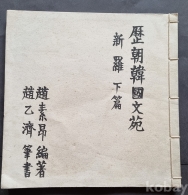 歷朝韓國文苑
新羅 下篇
趙素昂 編著
趙乙濟 筆書
kobay